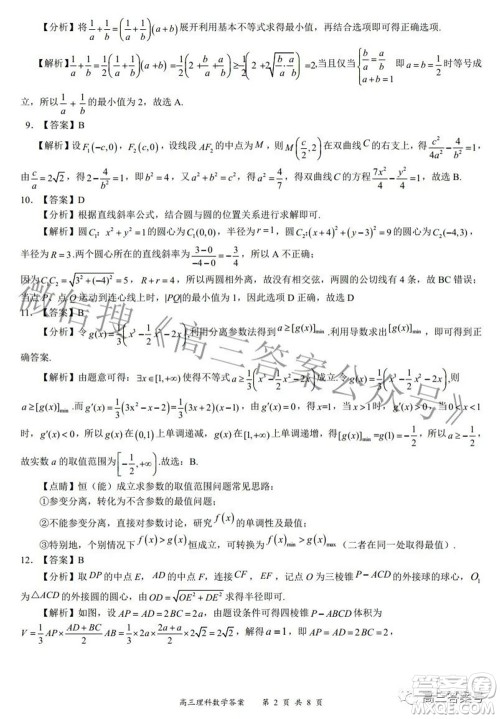 【分析】将 1/a + 1/b = (1/a + 1/b)(a+b) 展开利用基本不等式求得最小值，再结合选项即可得正确选项.
【解析】1/a + 1/b = (1/a + 1/b)(a+b) = 1/2(2 + b/a + a/b) ≥ 1/2(2 + 2√(b/a · a/b)) = 2,当且仅当 {b/a = a/b, a+b=2 即 a=b=1 时等号成
立，所以 1/a + 1/b 的最小值为 2，故选 A.
9．【答案】B
【解析】设 F₁(-c,0)，F₂(c,0)，设线段 AF₂ 的中点为 M，则 M(c/2, 2) 在双曲线 C 的右支上，得 c²/4a² - 4/b² = 1，
由 c/a = 2√2，得 2 - 4/b² = 1，b² = 4，由 a² + b² = c²，得 a² = 4/7，得双曲线 C 的方程 7x²/4 - y²/4 = 1，故选 B.
10．【答案】D
【分析】根据直线斜率公式，结合圆与圆的位置关系进行求解即可.
【解析】圆 C₁: x² + y² = 1 的圆心 C₁(0,0)，半径为 r = 1，圆 C₂: (x+4)² + (y-3)² = 9 的圆心 C₂(-4,3)，
半径为 R = 3.两个圆心所在的直线斜率为 (3-0)/(-4-0) = -3/4，所以 A 不正确;
因为 C₁C₂ = √(3² + (-4)²) = 5，R + r = 4，所以两圆相离，故两圆的公切线有 4 条，故 BC 错误;
当点 P，点 Q 运动到连心线上时，|PQ| 的最小值为 1，因此选项 D 正确，故选 D
11．【答案】B
【分析】令 g(x) = 1/3(x³ - 1/2x² - 2x)，将问题转化为当存在时成立得到 a ≥ [g(x)]min，利用导数求出，即可得到正确答案.
【解析】由题意可得：∃x∈[1,+∞) 使得不等式 a ≥ 1/3(x³ - 1/2x² - 2x) 成立，令 g(x) = 1/3(x³ - 1/2x² - 2x)，则
a ≥ [g(x)]min .而 g′(x) = 1/3(3x² - x - 2) = 1/3(3x+2)(x-1)，当 x > 1 时，g′(x) > 0，当 0 < x < 1
时，g′(x) < 0，所以 g(x) 在 (0,1) 上单调递减，在 (1,+∞) 上单调递增，[g(x)]min = g(1) = -1/2，所以 a ≥ -1/2，
故实数 a 的取值范围为 [-1/2, +∞).故选：B.
【点睛】恒（能）成立求参数的取值范围问题常见思路：
①参变分离，转化为不含参数的最值问题；
②不能参变分离，直接对参数讨论，研究 f(x) 的单调性及最值；
③特别地，个别情况下 f(x) > g(x) 恒成立，可转换为 f(x)min > g(x)max （二者在同一处取得最值）.
12．【答案】B
【分析】取 DP 的中点 E，AF 的中点，连接 CF，EF，记点 O 为三棱锥 P-ACD 的外接球的球心，O₁
为 △ACD 的外接圆的圆心，由 OD = √(OE² + DE²) 求得半径即可.
【解析】如图，设 AP = AD = 2BC = 2AB，由题设条件可得四棱锥体积为
V = 1/3 AP × (AD+BC)/2 × AB = 1/3 × 2√2 × (2√2+√2)/2 × √2 = 2√2，解得 a = 1，即 AP = AD = 2BC = 2AB = 2，
高三理科数学答案 第 2 页 共 8 页
微信搜《高三答案公众号》
高三答案号